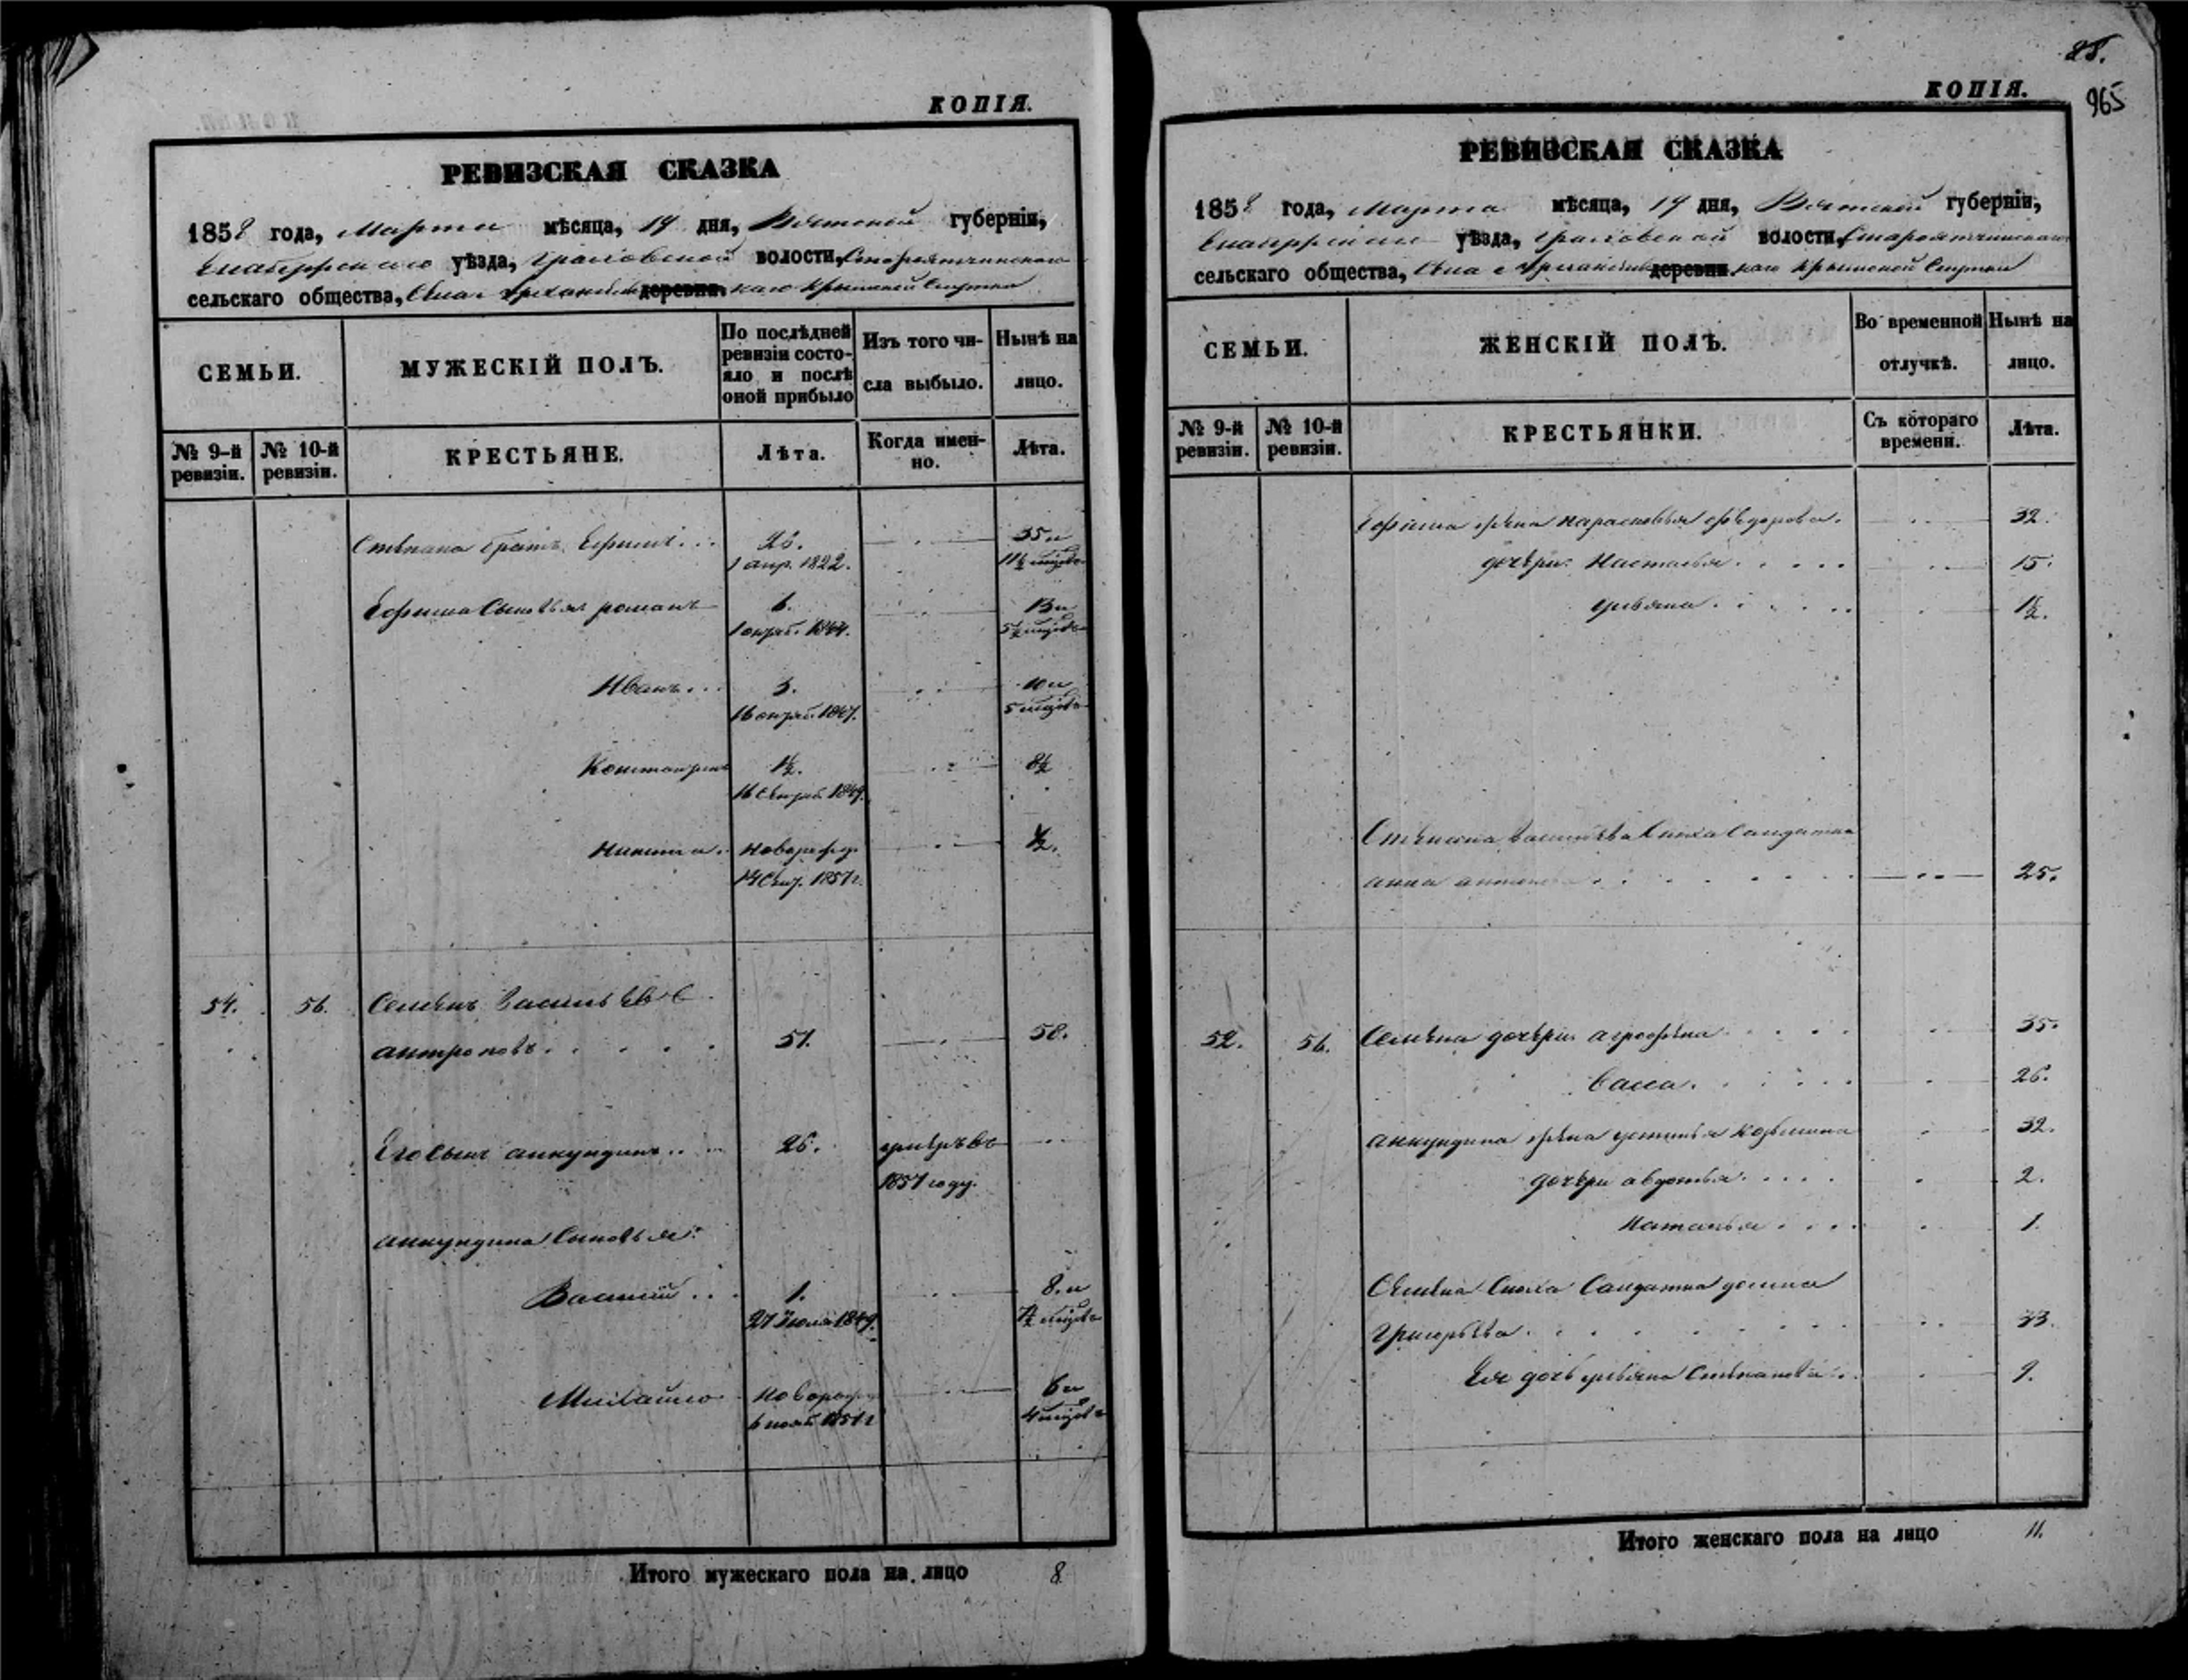 КОПІЯ.
РЕВИЗСКАЯ СКАЗКА
1858 года, Марта мѣсяца, 19 дня, Вятской губерніи,
уѣзда, Граховской волости,
сельскаго общества, Села деревни.
СЕМЬИ.
МУЖЕСКІЙ ПОЛЪ.
По послѣдней ревизіи состояло и послѣ оной прибыло
Изъ того числа выбыло.
Нынѣ на лицо.
№ 9-й ревизіи.
№ 10-й ревизіи.
КРЕСТЬЯНЕ.
Лѣта.
Когда именно.
Лѣта.
Степана братъ Ефимъ 26. 35 и
1 апр. 1822. 11½ мѣсяцевъ
Ефима сыновья романъ 6. 13 и
1 октяб. 1844. 5½ мѣсяцевъ
Иванъ 3. 10 и
16 октяб. 1847. 5 мѣсяцевъ
1½. 8½
16 Сентяб. 1849.
никита новорожд. ½.
14 Сент. 1857 г.
54. 56. Семенъ Васильевъ
антроповъ 51. 58.
Его сынъ анкундинъ 26. умеръ въ
1857 году.
анкундина сыновья:
Василій 1. 8. и
27 Іюля 1849. 7½ мѣсяцевъ
Михайло новорожд 6 и
6 нояб. 1851 г 4 мѣсяцевъ
Итого мужескаго пола на лицо 8
28.
965
КОПІЯ.
РЕВИЗСКАЯ СКАЗКА
1858 года, Марта мѣсяца, 19 дня, Вятской губерніи,
уѣзда, Граховской волости,
сельскаго общества, Села деревни.
СЕМЬИ.
ЖЕНСКІЙ ПОЛЪ.
Во временной отлучкѣ.
Нынѣ на лицо.
№ 9-й ревизіи.
№ 10-й ревизіи.
КРЕСТЬЯНКИ.
Съ котораго времени.
Лѣта.
Ефима жена парасковья федорова. 32.
дочери: Настасья 15.
ульяна 1½.
Степана Васильева сноха Салдатка
анна 25.
52. 56. Семена дочери агрофена 35.
Васса 26.
анкундина жена устинья 32.
дочери авдотья 2.
Наталья 1.
Семена Сноха Салдатка домна
Григорьева 33.
Ея дочь ульяна Степанова 9.
Итого женскаго пола на лицо 11.